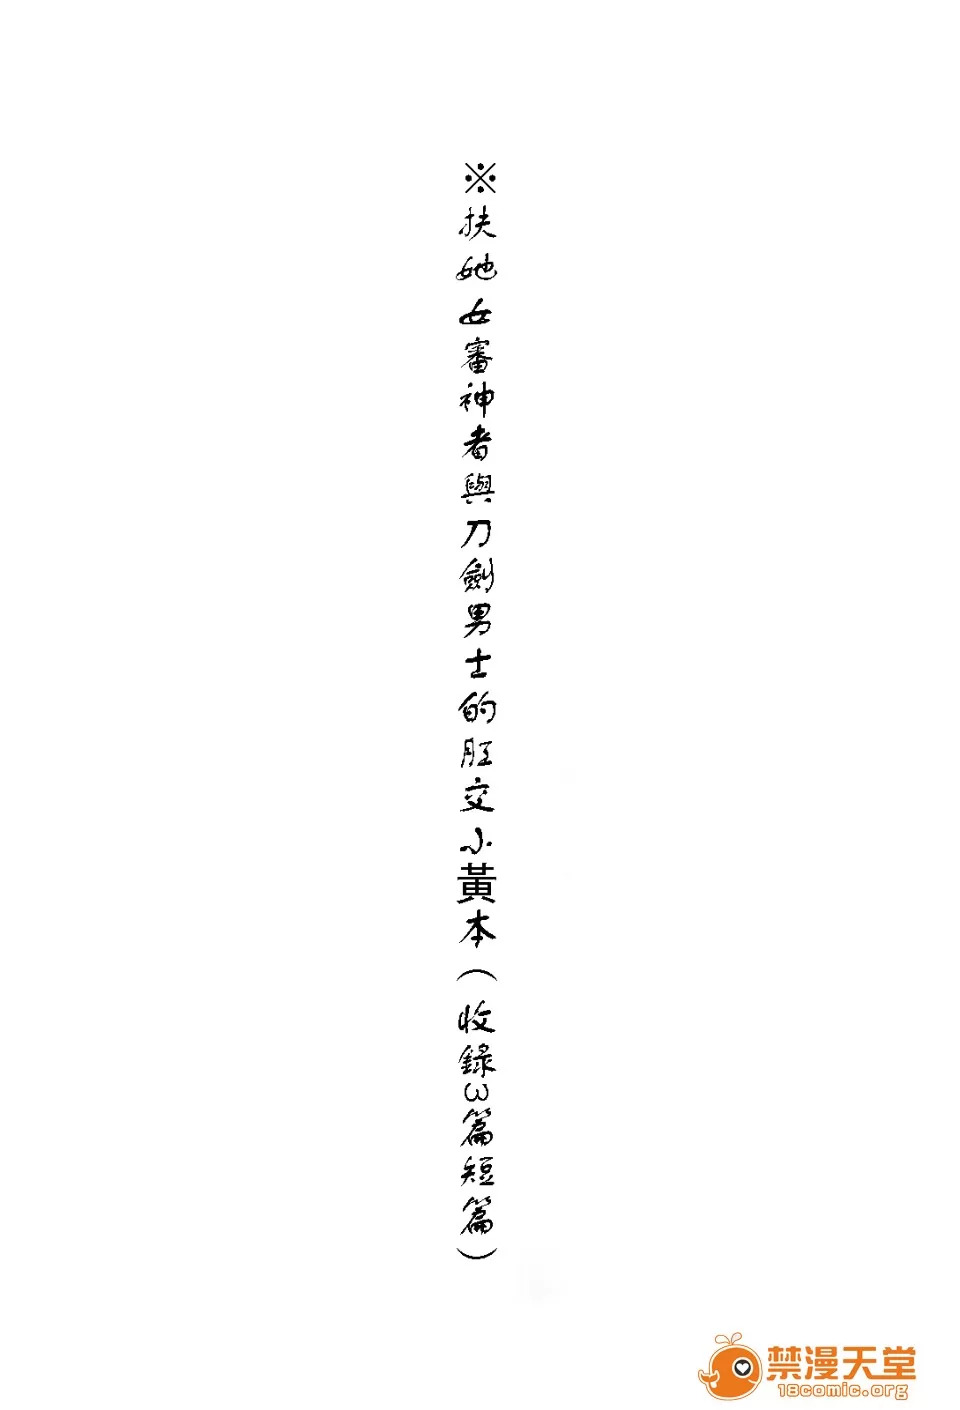 ※扶她女審神者與刀劍男士的肛交小黃本（收錄3篇短篇）
禁漫天堂
18comic.org